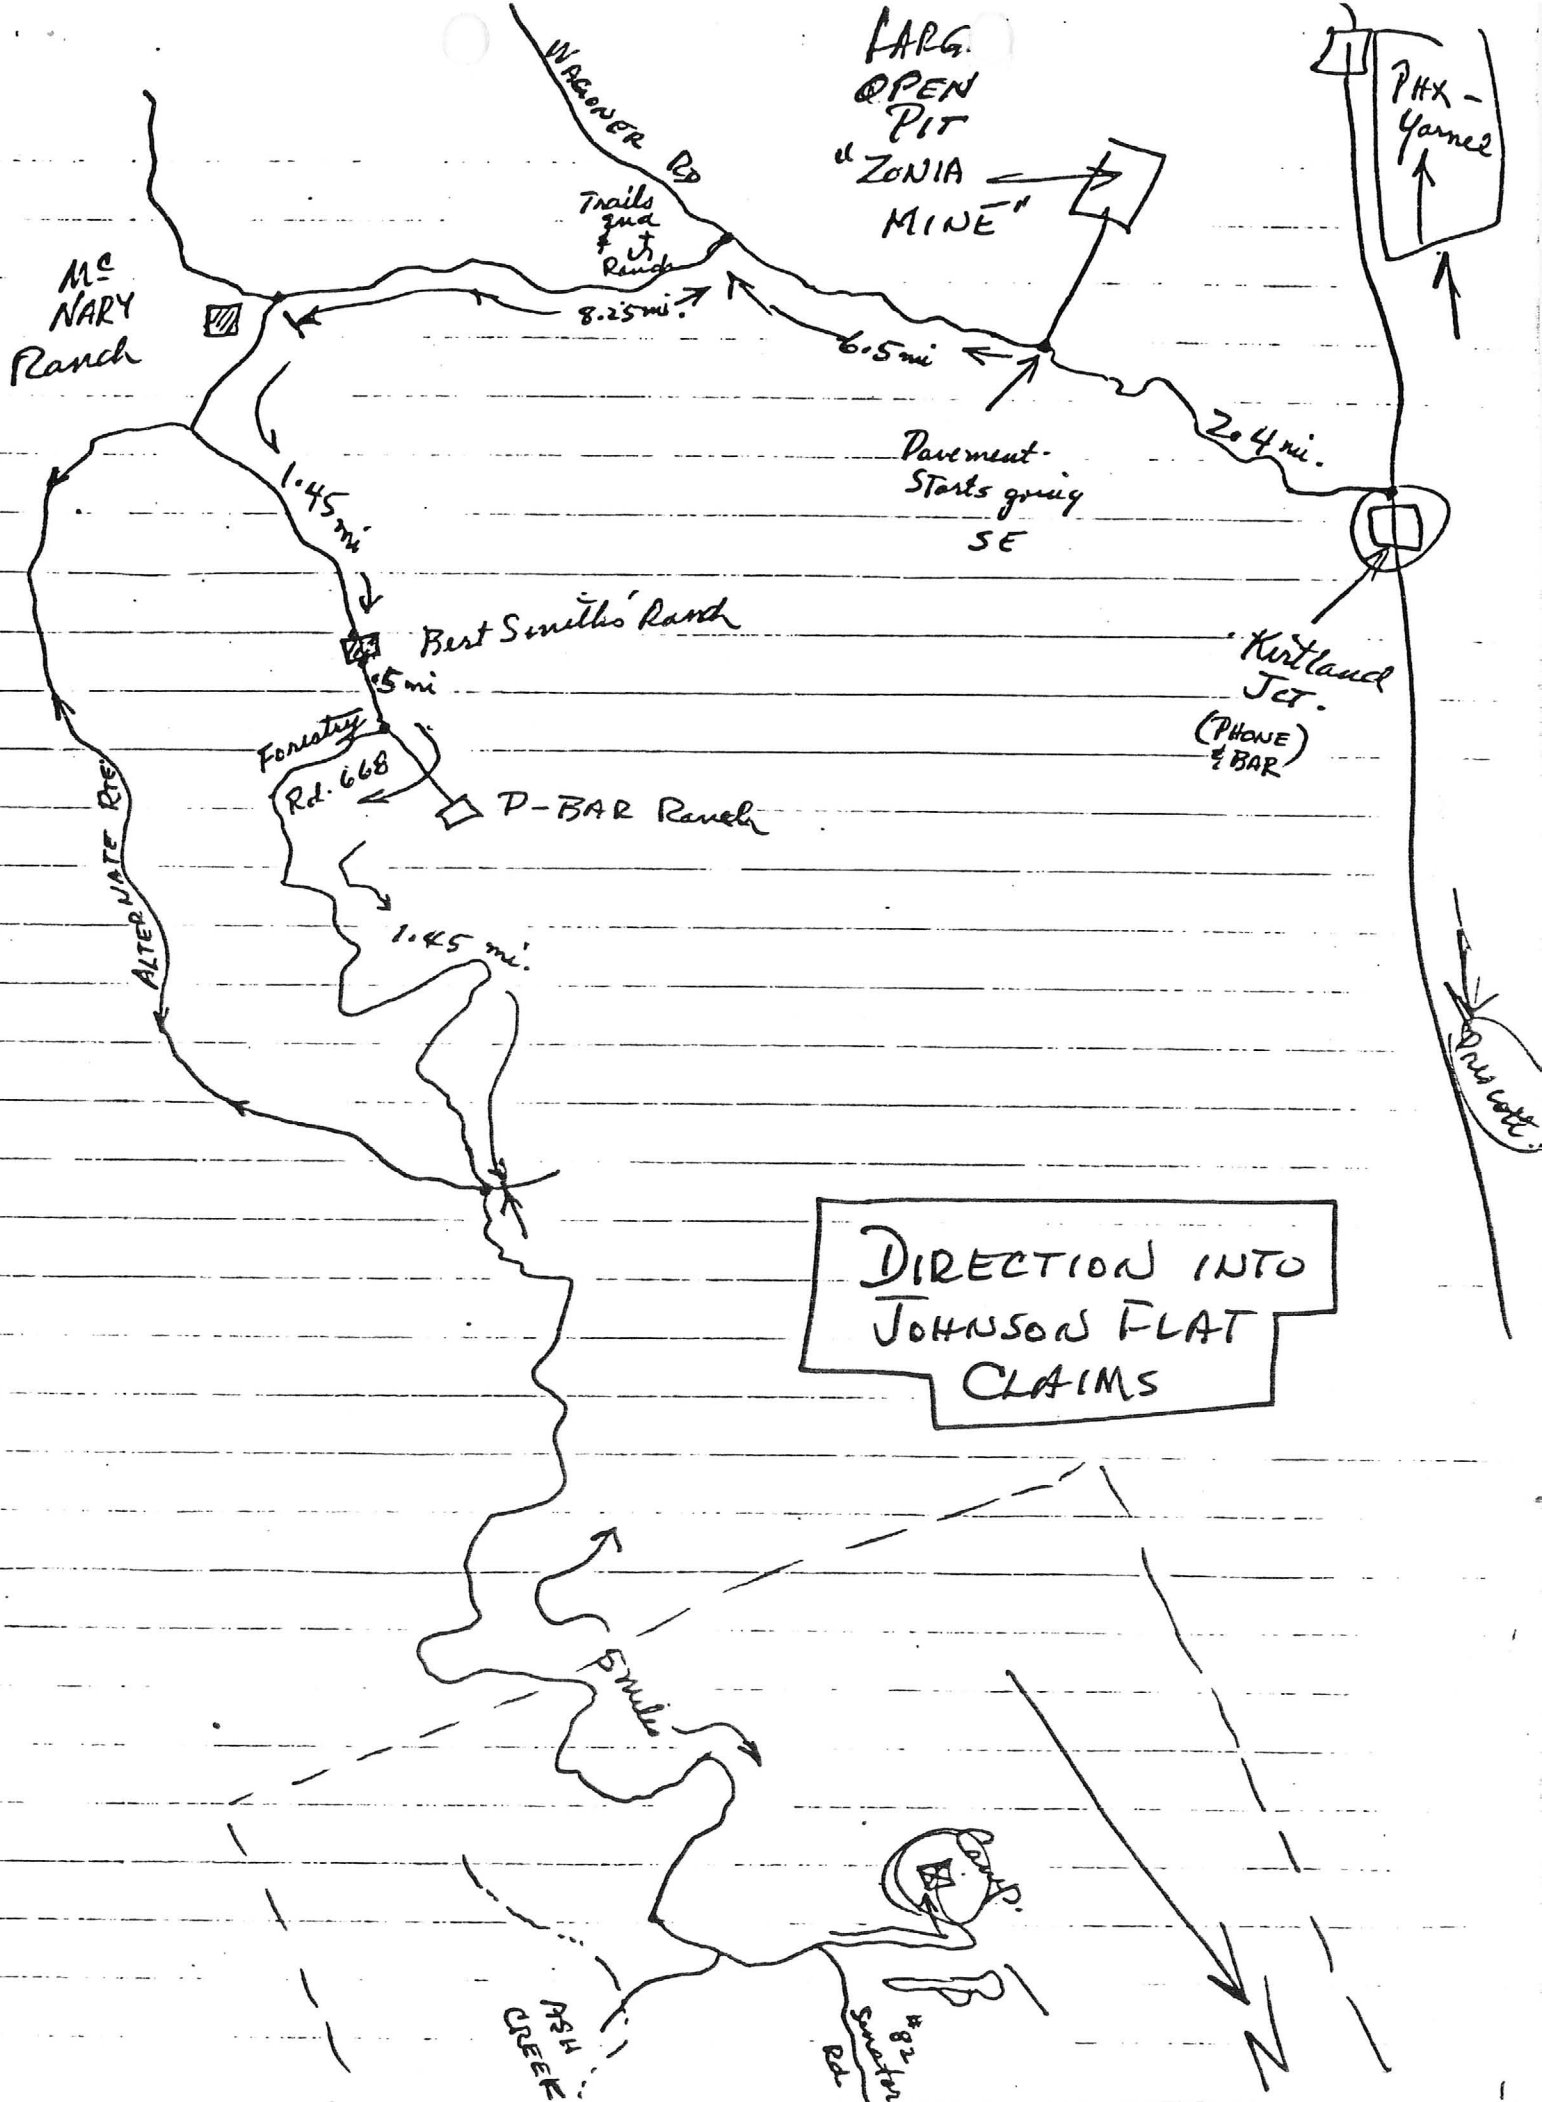 LARG.
OPEN
PIT
"ZONIA
MINE"
PHX -
Yarnel
WAGONER RD
Trails
End
Ranch
Mc
NARY
Ranch
8.25 mi.
6.5 mi
2.4 mi.
Pavement
Starts going
SE
1.45 mi
Bert Smith's Ranch
.5 mi
Kirtland
JCT.
(PHONE)
& BAR
Forestry
Rd. 668
D-BAR Ranch
ALTERNATE RTE.
1.45 mi.
Prescott
DIRECTION INTO
JOHNSON FLAT
CLAIMS
5 miles
Camp.
ASH
CREEK
#82
Senator
Rd
N